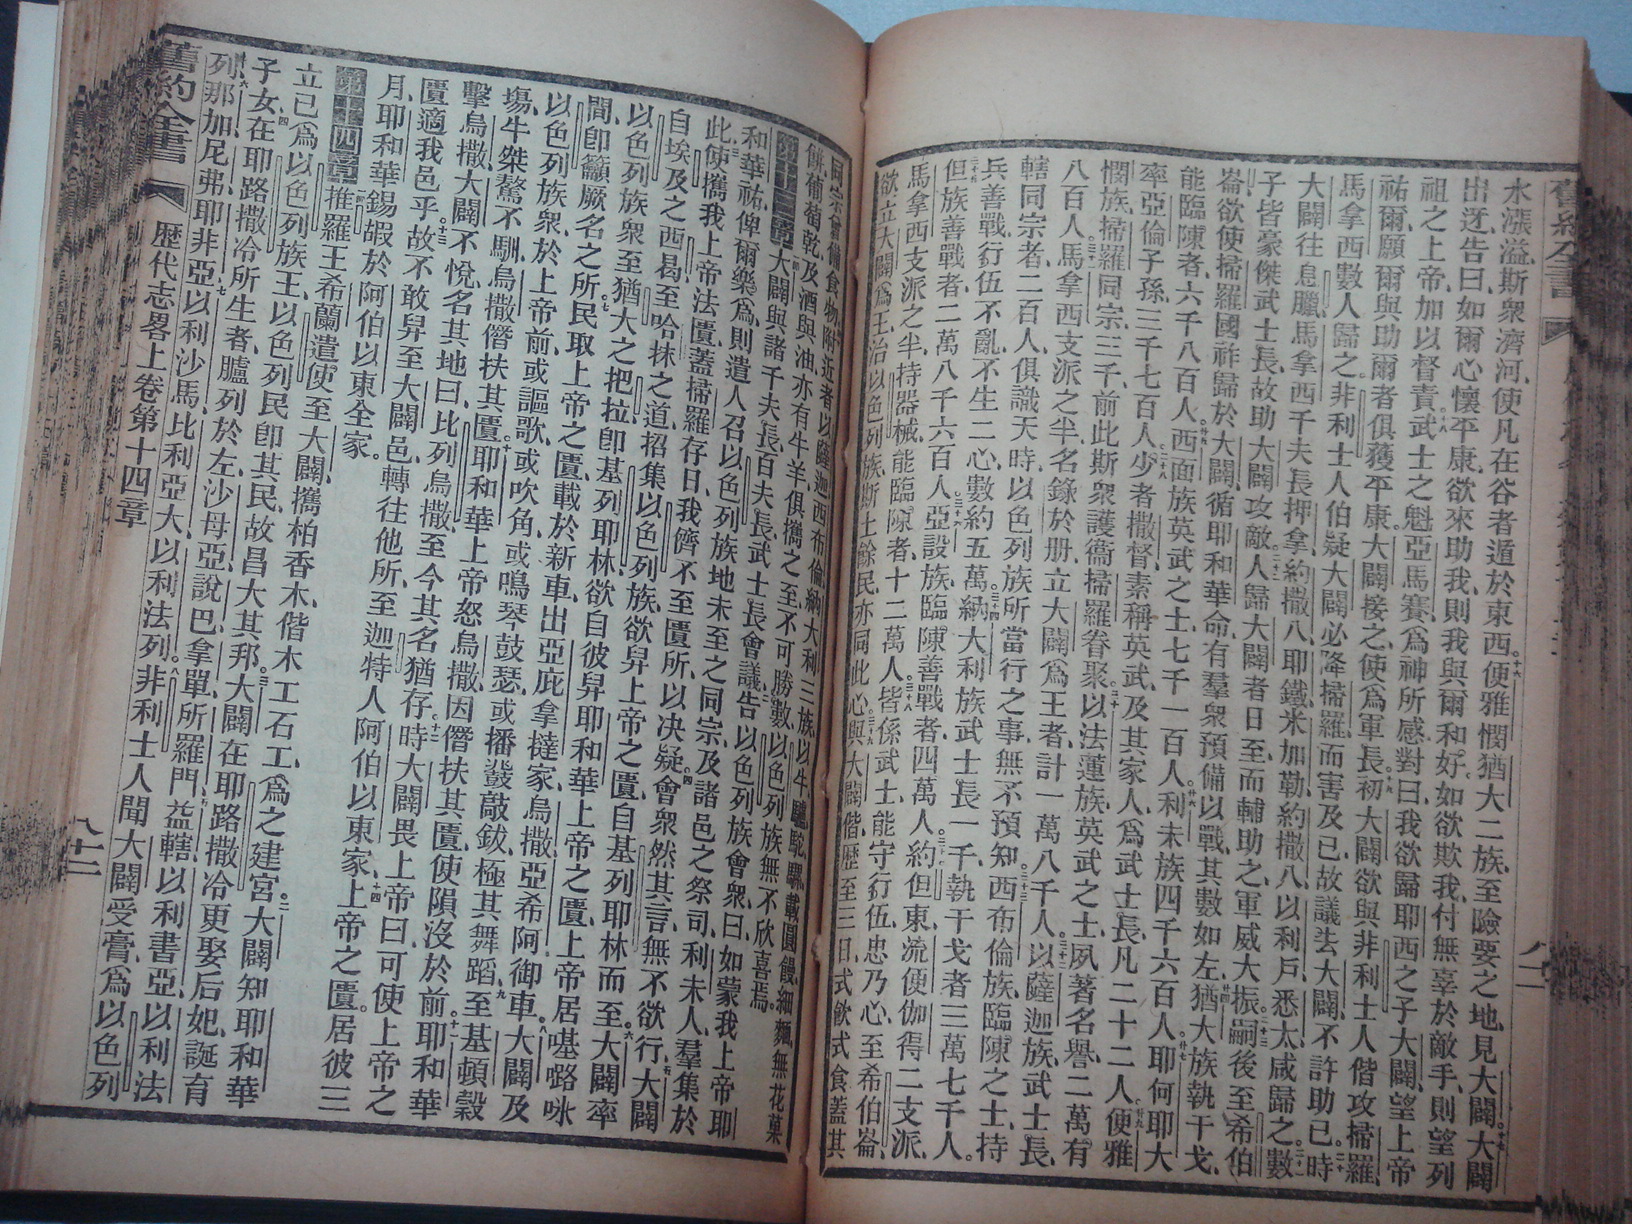 舊約全書
水漲溢、斯衆濟河、使凡在谷者遁於東西、十六便雅憫猶大二族、至險要之地、見大闢、十七大闢
出迓、告曰、如爾心懷平康、欲來助我、則我與爾和好、如欲欺我、付無辜於敵手、則望列
祖之上帝、加以督責、十八武士之魁亞馬賽、爲神所感、對曰、我欲歸耶西之子大闢、望上帝
祐爾、願爾與助爾者、俱獲平康、大闢接之、使爲軍長、十九初大闢欲與非利士人偕攻掃羅、
馬拿西數人歸之、非利士人伯疑大闢必降掃羅、而害及已、故議去大闢、不許助已、二十時
大闢往息臘、馬拿西千夫長押拿、約撒八、耶鐵、米加勒、約撒八、以利戶、悉太、咸歸之、二十一數
子皆豪傑武士長、故助大闢攻敵、二十二人歸大闢者日至、而輔助之、軍威大振、二十三嗣後至希伯
崙、欲使掃羅國祚歸於大闢、循耶和華命、有羣衆預備以戰、其數如左、廿四猶大族執干戈、
能臨陳者、六千八百人、廿五西面族英武之士、七千一百人、廿六利未族四千六百人、廿七耶何耶大
率亞倫子孫、三千七百人、二十八少者撒督、素稱英武、及其家人、爲武士長、凡二十二人、廿九便雅
憫族、掃羅同宗、三千、前此斯衆護衞掃羅眷聚、三十以法蓮族英武之士、夙著名譽、二萬有
八百人、三十一馬拿西支派之半、名錄於册、立大闢爲王者、計一萬八千人、三十二以薩迦族、武士長、
轄同宗者、二百人、俱識天時、以色列族所當行之事、無不預知、三十三西布倫族、臨陳之士、持
兵善戰、行伍不亂、不生二心、數約五萬、三十四納大利族武士長一千、執干戈者三萬七千人、
三十五但族善戰者、二萬八千六百人、三十六亞設族、臨陳善戰者、四萬人、三十七約但東、流便伽得二支派、
馬拿西支派之半、持器械、能臨陳者、十二萬人、三十八皆係武士、能守行伍、忠乃心、至希伯崙、
欲立大闢爲王、治以色列族、斯土餘民、亦同此心、三十九與大闢偕歷至三日、式飲式食、蓋其
八十一
同宗曾備食物、附近者、以薩迦、西布倫、納大利三族、以牛驢駝騾、載圓饅、細麵、無花菓
餅、葡萄乾、及酒與油、亦有牛羊、俱攜之至、不可勝數、以色列族無不欣喜焉、
第十三章 一大闢與諸千夫長、百夫長、武士長會議、二告以色列族會衆曰、如蒙我上帝耶
和華祐、俾爾樂爲、則遣人召以色列族地未至之同宗、及諸邑之祭司利未人、羣集於
此、三使攜我上帝法匱、蓋掃羅存日、我儕不至匱所以决疑、四會衆然其言、無不欲行、五大闢
自埃及之西曷、至哈抹之道、招集以色列族、欲舁上帝之匱、自基列耶林而至、六大闢率
以色列族衆、至猶大之把拉、卽基列耶林、欲自彼舁耶和華上帝之匱、上帝居𠸄㘔㖠
間、卽籲厥名之所、七民取上帝之匱、載於新車、出亞庇拿撻家、烏撒、亞希阿御車、八大闢及
以色列族衆、於上帝前、或謳歌、或吹角、或鳴琴鼓瑟、或播鼗敲鈸、極其舞蹈、九至基頓穀
塲、牛桀驁不馴、烏撒僭扶其匱、十耶和華上帝怒烏撒、因僭扶其匱、使隕沒於前、十一耶和華
擊烏撒、大闢不悅、名其地曰、比列烏撒、至今其名猶存、十二時大闢畏上帝曰、可使上帝之
匱適我邑乎、十三故不敢舁至大闢邑、轉往他所、至迦特人阿伯以東家、十四上帝之匱、居彼三
月、耶和華錫嘏於阿伯以東全家。
第十四章 一推羅王希蘭遣使至大闢、攜柏香木、偕木工石工、爲之建宮、二大闢知耶和華
立已爲以色列族王、以色列民卽其民、故昌大其邦、三大闢在耶路撒冷更娶后妃、誕育
子女、四在耶路撒冷所生者、臚列於左、沙母亞、說巴、拿單、所羅門、五益轄、以利書亞、以利法
列、六那加、尼弗、耶非亞、七以利沙馬、比利亞大、以利法列、八非利士人聞大闢受膏、爲以色列
舊約全書 歷代志畧上卷第十四章
八十二